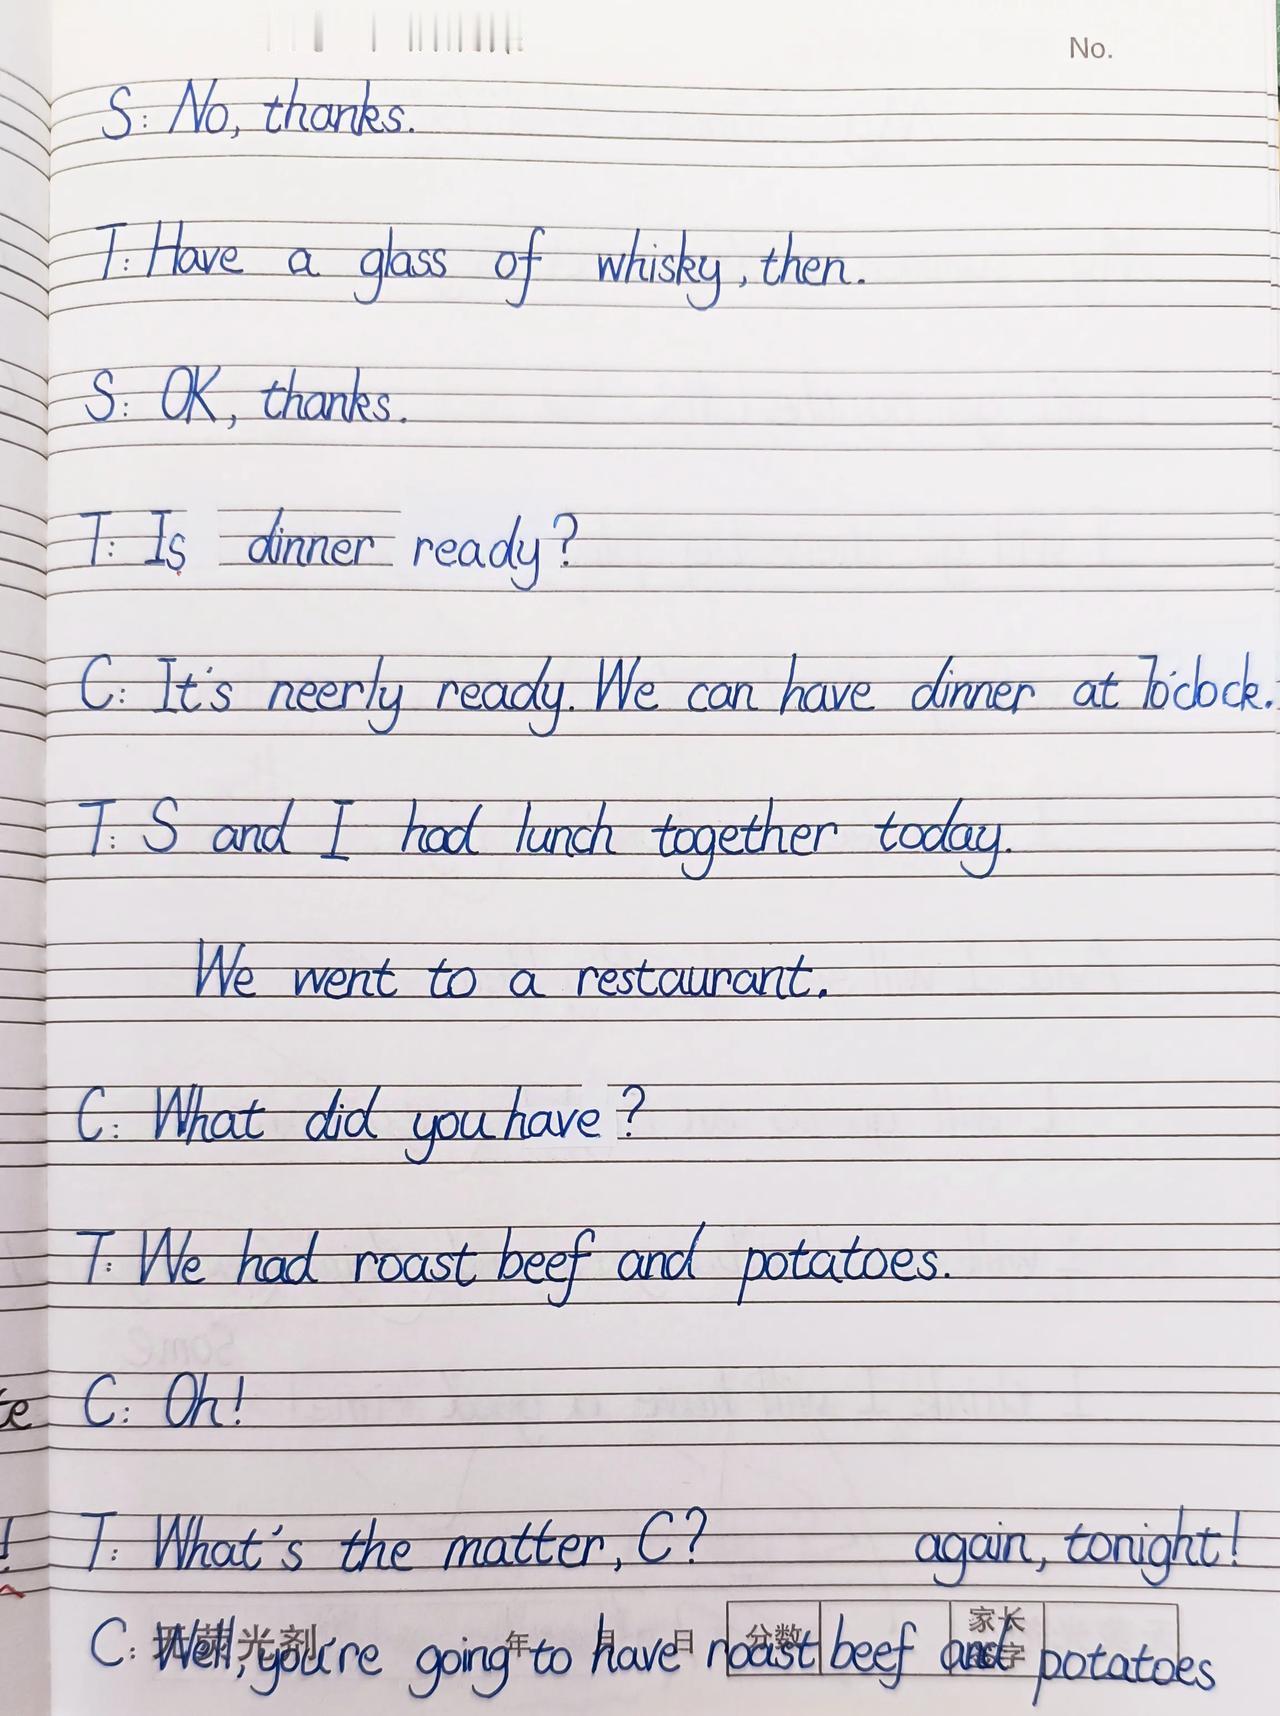 No.
S: No, thanks.
T: Have a glass of whisky, then.
S: OK, thanks.
T: Is dinner ready?
C: It's neerly ready. We can have dinner at 7o'clock.
T: S and I had lunch together today.
We went to a restaurant.
C: What did you have?
T: We had roast beef and potatoes.
C: Oh!
T: What's the matter, C?
C: Well, you're going to have roast beef and potatoes
again, tonight!
光剂 年 月 日 分数 家长
字